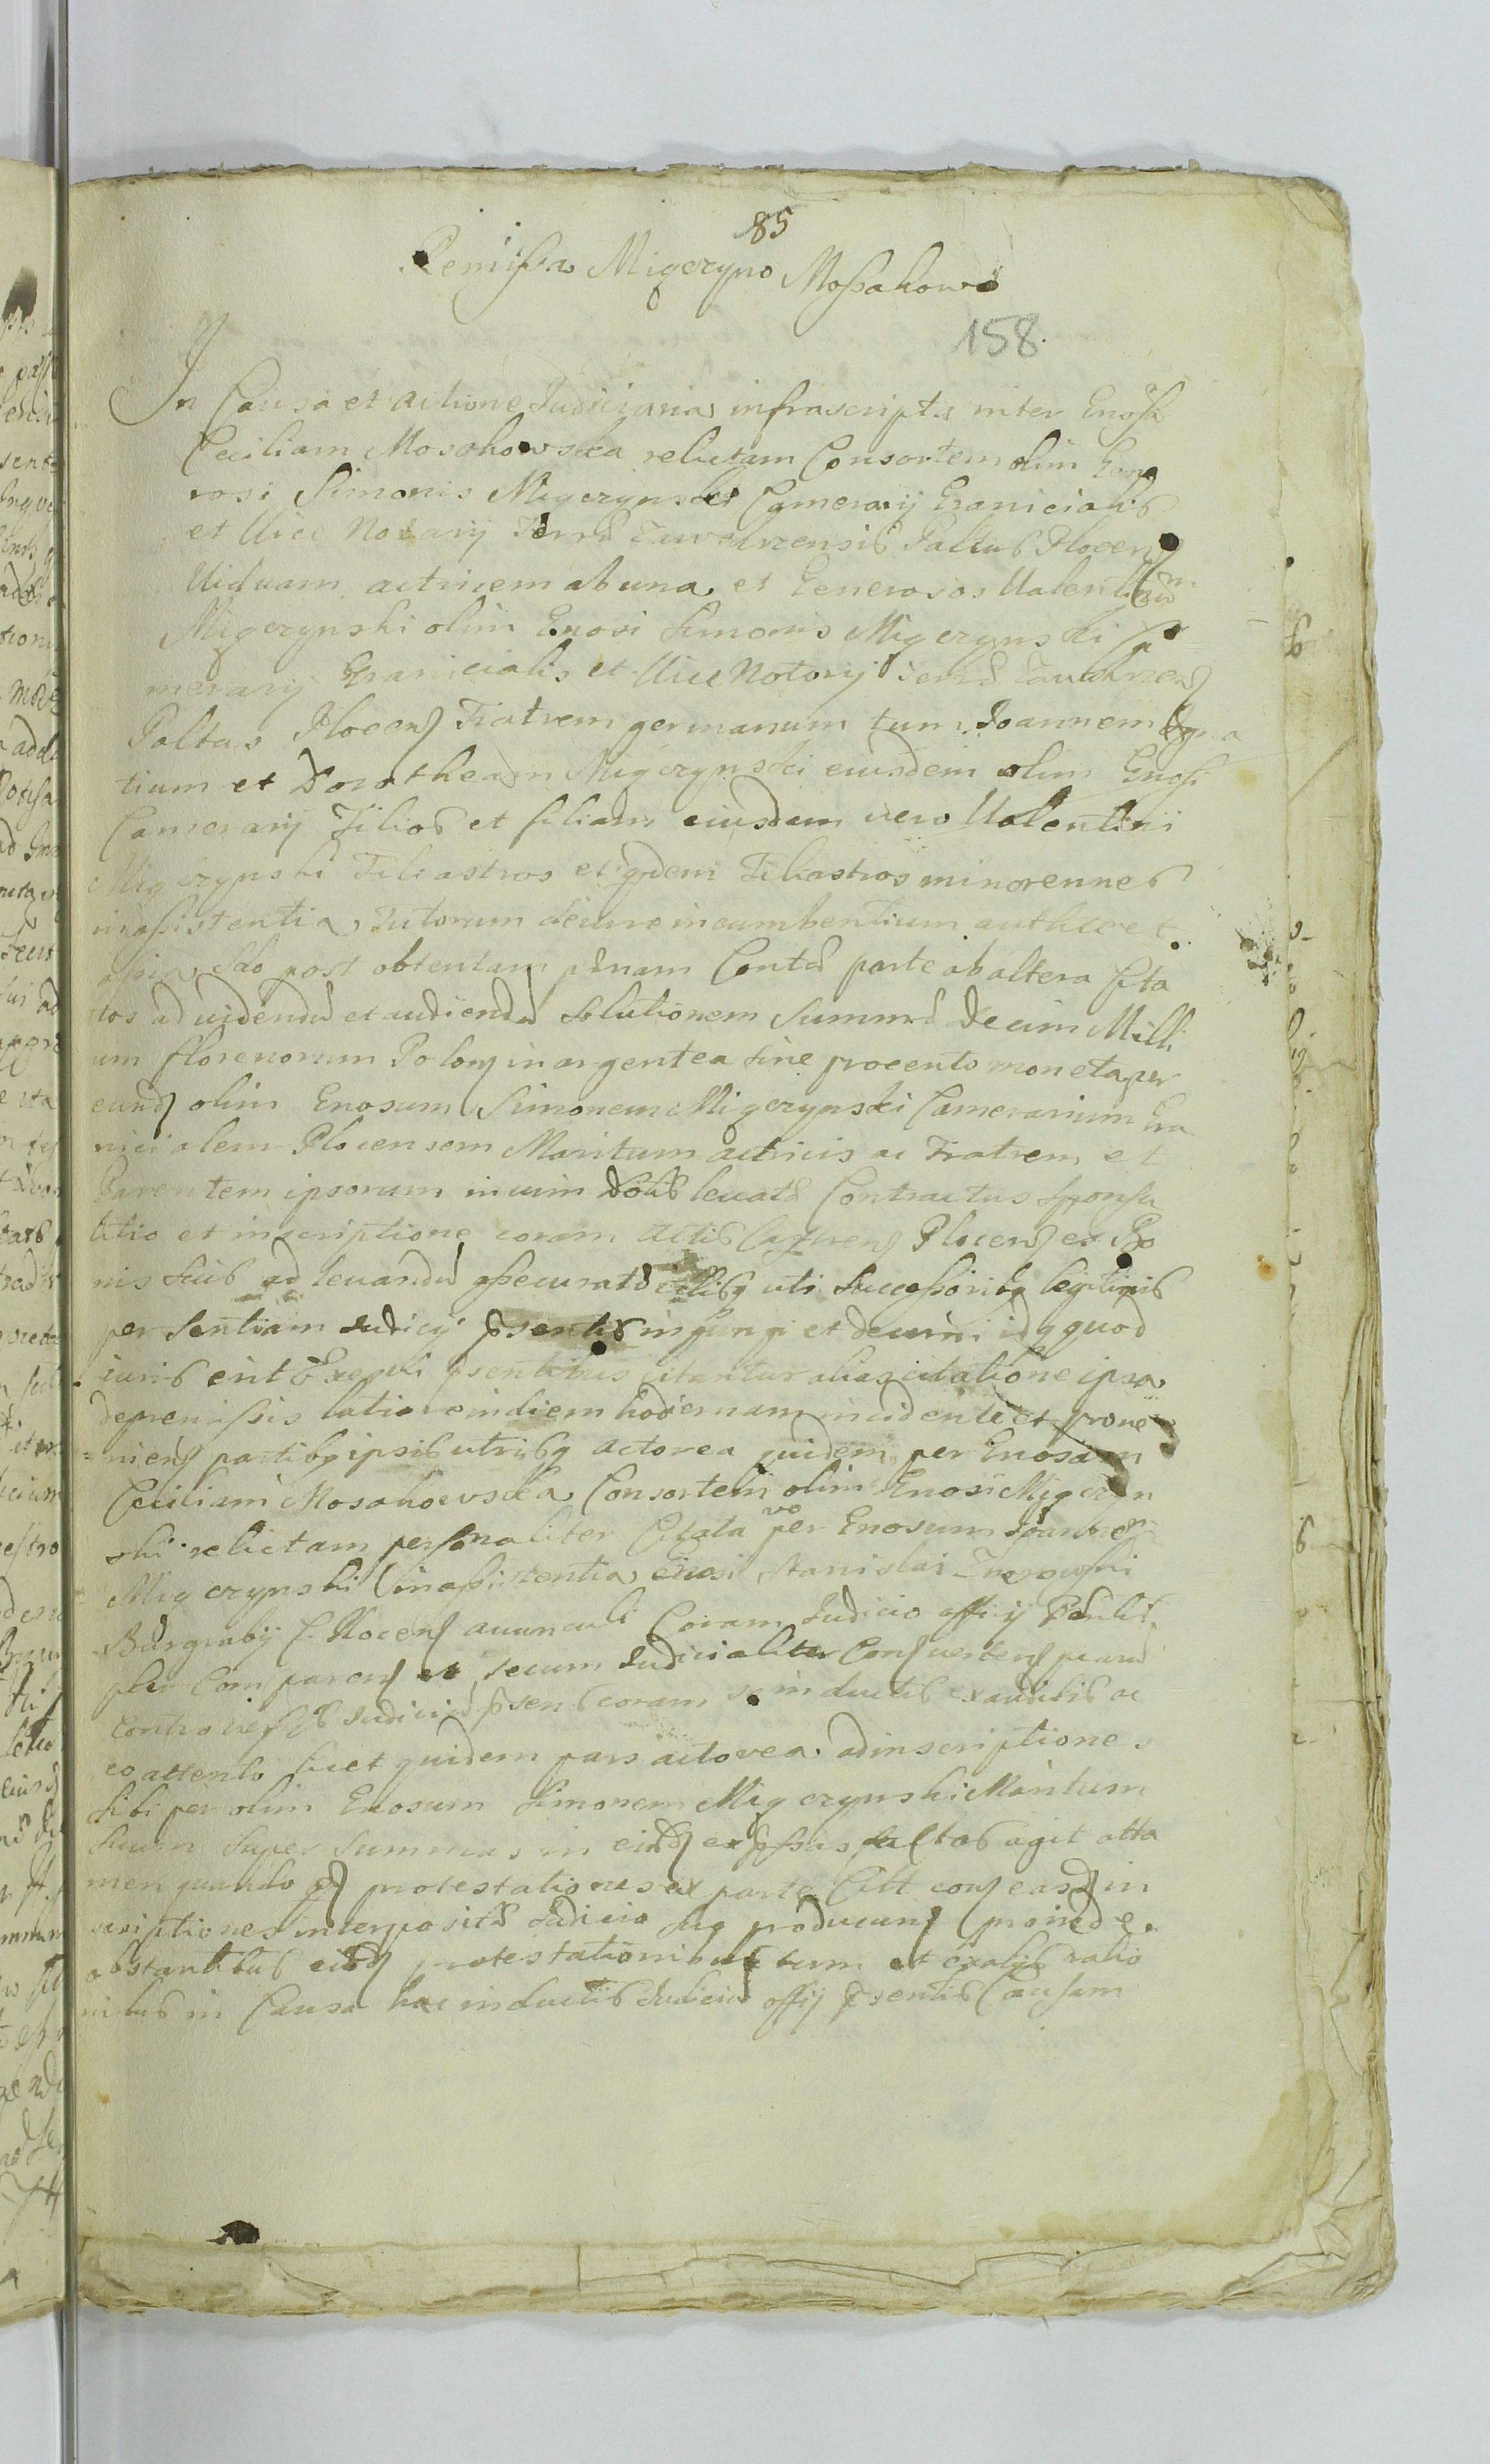 85
Remissa Migczyno Mossakows
158.
In Causa et actione Judiciaria infrascripta inter Gnosa
Ceciliam Mosakowska relictam Consortem olim Gene
rosi Simonis Migczynski Camerarij Granicialis
et Vice Notarij Terrae Zawskrzensis Paltus Plocens
Viduam actricem ab una et Generosos Valentinum
Migczynski olim Gnosi Simonis Migczynski Ca
merarij Granicialis et Vice Notarij Terrae Zawskrzens
Paltas Plocens Fratrem germanum tum Joannem Igna
tium et Dorotheam Migczynski eiusdem olim Gnosi
Camerarij Filios et filiam eiusdem vero Valentini
Migczynski Filiastros et qdem Filiastros minorennes
in assistentia Tutorum de iure incumbentium auth et
post obtentam Contd parte ab altera Cita
tos ad videndū et audiendū Solutionem Summae decim Milli
um florenorum Polon in argentea sine procento moneta per
eund olim Gnosum Simonem Migczynski Camerarium Gra
nicialem Plocensem Maritum actricis ac Fratrem et
Parentem ipsorum in vim dotis levatae Contractus Sponsa
litio et inscriptione coram actis Plocens ex Bo
nis suis ad levandū assecuratae illisq uti Successoribq legitimis
per Sentiam Judicij psentis injungi et decerni idq quod
iuris erit psentibus citantur alias citatione ipsa
de premissis latiore in diem hodiernam incidente et prove
niens partibq ipsis utrisq actorea quidem per Gnosam
Ceciliam Mosakowska Consortem olim Gnosi Migczyn
ski relictam personaliter Citata vo per Gnosum Joannem
Migczynski in assistentia Gnosi Stanislai
Burgrabij C. Plocens avunculi Coram Judicio officij psentis
pler Comparens et secum Judicialiter Consvertens
controversis Judiciū psens coram se inductis exauditis ac
eo attento licet quidem pars actorea ad inscriptiones
sibi per olim Gnosum Simonem Migczynski Maritum
suum super Summas in eisd expssas factas agit atta
men quando qd protestationes ex parte Citt cons easd in
scriptiones interpositae Judicio suo producuns proinde
obstantibus eisd protestationibus tum et exalijs ratio
nibus in Causa hac inductis Judiciū offij psentis Causam